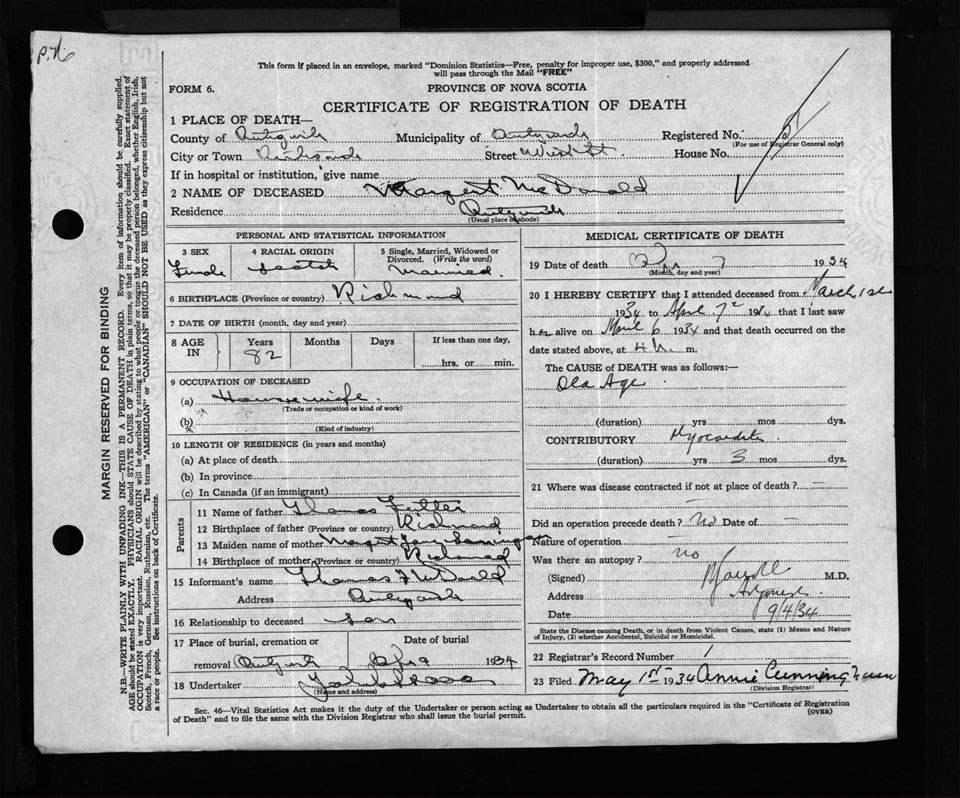 This form if placed in an envelope, marked "Dominion Statistics—Free, penalty for improper use, $300," and properly addressed
will pass through the Mail "FREE"
FORM 6.
PROVINCE OF NOVA SCOTIA
CERTIFICATE OF REGISTRATION OF DEATH
1 PLACE OF DEATH—
County of Municipality of Registered No.
(For use of Registrar General only)
City or Town Street West St. House No.
If in hospital or institution, give name
2 NAME OF DECEASED Margaret McDonald
Residence
(Usual place of abode)
PERSONAL AND STATISTICAL INFORMATION
3 SEX 4 RACIAL ORIGIN 5 Single, Married, Widowed or Divorced. (Write the word)
Female Scotch Married.
6 BIRTHPLACE (Province or country) Richmond
7 DATE OF BIRTH (month, day and year)
8 AGE IN Years Months Days If less than one day,
82 hrs. or min.
9 OCCUPATION OF DECEASED
(a) Housewife
(Trade or occupation or kind of work)
(b)
(Kind of industry)
10 LENGTH OF RESIDENCE (in years and months)
(a) At place of death
(b) In province
(c) In Canada (if an immigrant)
Parents
11 Name of father Thomas
12 Birthplace of father (Province or country) Richmond
13 Maiden name of mother
14 Birthplace of mother (Province or country) Richmond
15 Informant's name Thomas McDonald
Address
16 Relationship to deceased son
17 Place of burial, cremation or Date of burial
removal Apr 9 1934
18 Undertaker
(Name and address)
MEDICAL CERTIFICATE OF DEATH
19 Date of death Apr 7 1934
(Month, day and year)
20 I HEREBY CERTIFY that I attended deceased from March 1st
1934 to April 7 1934 that I last saw
her alive on April 6 1934 and that death occurred on the
date stated above, at 4 m.
The CAUSE of DEATH was as follows:—
Old Age
(duration) yrs mos dys.
CONTRIBUTORY Myocarditis
(duration) yrs 3 mos dys.
21 Where was disease contracted if not at place of death? —
Did an operation precede death? no Date of —
Nature of operation —
Was there an autopsy? no
(Signed) M.D.
Address
Date 9/4/34
State the Disease causing Death, or in death from Violent Causes, state (1) Means and Nature
of Injury, (2) whether Accidental, Suicidal or Homicidal.
22 Registrar's Record Number 1
23 Filed May 1st 1934 Annie Cunningham
(Division Registrar)
Sec. 46—Vital Statistics Act makes it the duty of the Undertaker or person acting as Undertaker to obtain all the particulars required in the "Certificate of Registration
of Death" and to file the same with the Division Registrar who shall issue the burial permit.
(OVER)
MARGIN RESERVED FOR BINDING
N.B.—WRITE PLAINLY WITH UNFADING INK—THIS IS A PERMANENT RECORD. Every item of information should be carefully supplied.
AGE should be stated EXACTLY. PHYSICIANS should STATE CAUSE OF DEATH in plain terms, so that it may be properly classified. Exact statement of
OCCUPATION is very important. RACIAL ORIGIN will be described by stating to what people or tongue the deceased person belonged, whether English, Irish,
Scotch, French, German, Russian, Ruthenian, etc. The terms "AMERICAN" or "CANADIAN" SHOULD NOT BE USED as they express citizenship but not
a race or people. See instructions on back of Certificate.